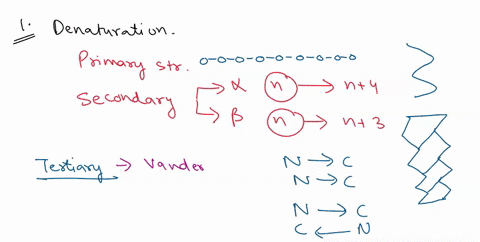 1. Denaturation.
Primary str.
Secondary
α n → n+4
β n → n+3
Tertiary → Vander
N → C
N → C
N → C
C ← N